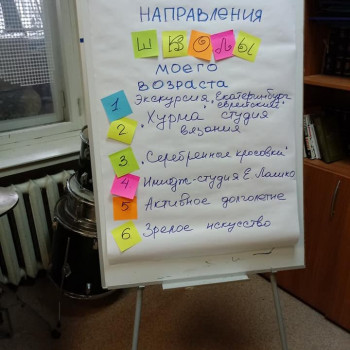 НАПРАВЛЕНИЯ
ШКОЛЫ
МОЕГО
ВОЗРАСТА
1 Экскурсия, Екатеринбурга
еврейский"
2 "Хурма" студия
вязания
3 "Серебрянные кросовки"
4 Имидж-студия Е. Лашко
5 Активное долголетие
6 Зрелое искусство